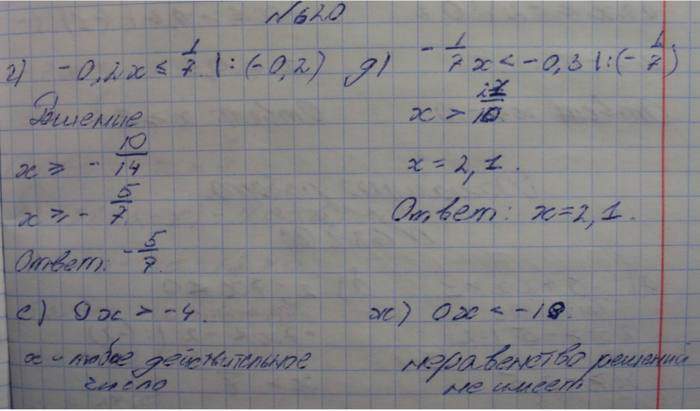 №620
г) -0,2x ≤ 1/7 |:(-0,2)
Решение
x ≥ - 10/14
x ≥ - 5/7
Ответ: - 5/7
д) - 1/7 x < -0,3 |:(- 1/7)
x > 21/10
x = 2,1.
Ответ: x=2,1.
е) 0x > -4.
x - любое действительное
число
ж) 0x < -18.
неравенство решений
не имеет